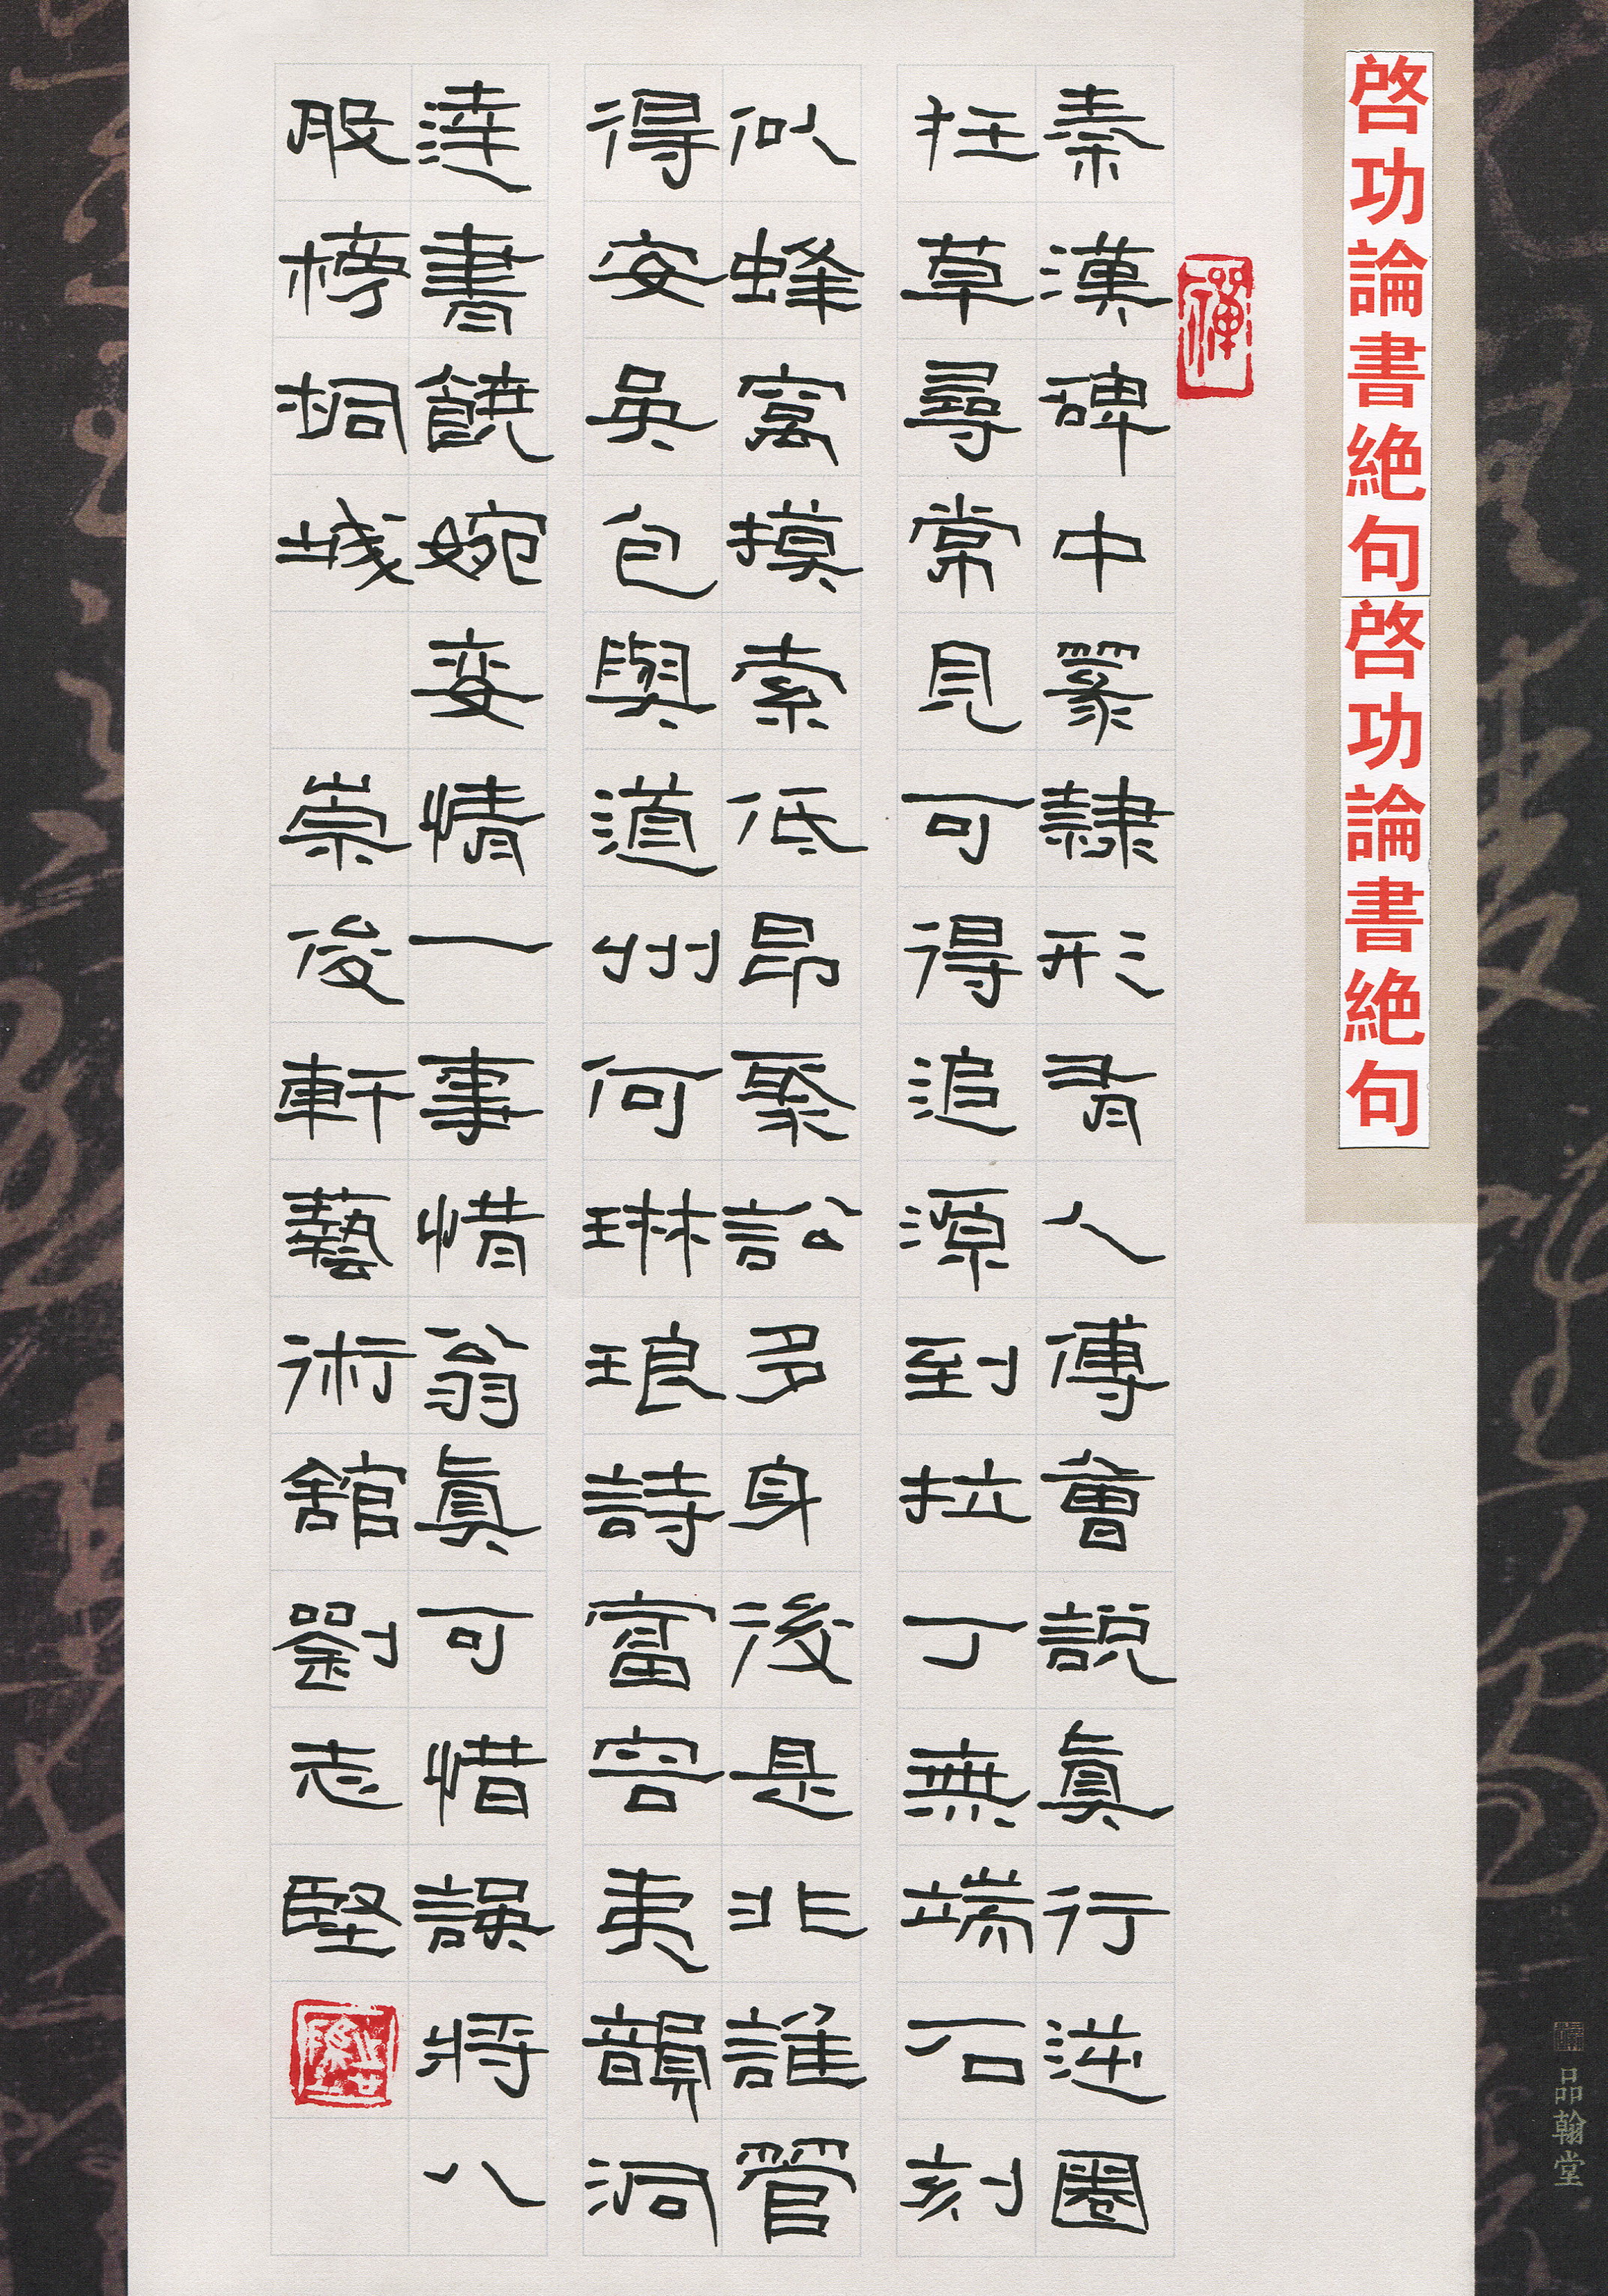 啓功論書絶句啓功論書絶句
秦漢碑中篆隸形有人傅會說眞行逆圈
狂草尋常見可得追源到拉丁無端石刻
似蜂窩摸索低昂聚訟多身後是非誰管
得安吳包與道州何琳琅詩富容夷韻洞
達書饒婉孌情一事惜翁眞可惜誤將八
股榜桐城 崇俊軒藝術館劉志堅
品翰堂